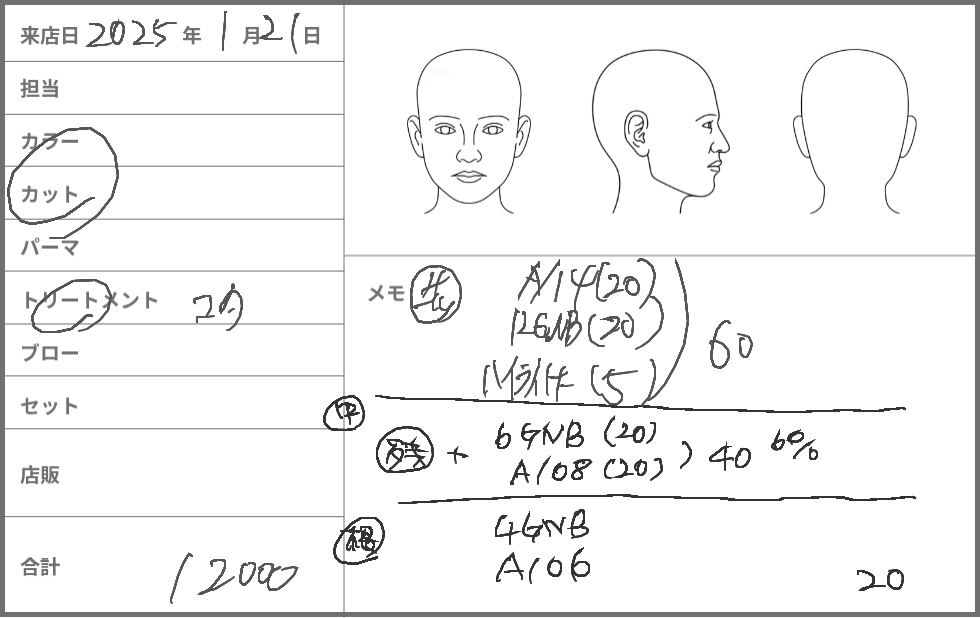 来店日 2025 年 1 月 21 日
担当
カラー
カット
パーマ
トリートメント コタ
ブロー
セット
店販
合計 12000
メモ 先 A/14 (20)
12GNB (20)
ハライト (5)
60
中
残 + 6GNB (20)
A/08 (20)
40 6%
根 4GNB
A/06
20